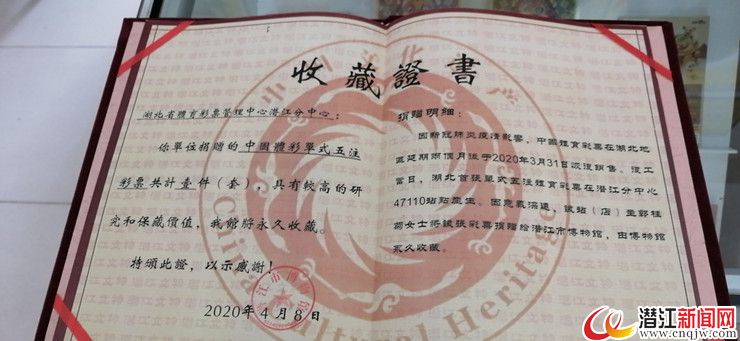 收藏證書
湖北省體育彩票管理中心潜江分中心：
你單位捐贈的中國體彩單式五注
彩票共計壹件（套），具有較高的研
究和保藏價值，我館將永久收藏。
特頒此證，以示感謝！
2020年4月8日
捐赠明细：
因新冠肺炎疫情影響，中國體育彩票在湖北地
區延期兩個月後于2020年3月31日恢復銷售。復工
當日，湖北首張單式五注體育彩票在潜江分中心
47110站點產生。因意義深遠，該站（店）主郭桂
女士將該張彩票捐贈給潜江市博物館，由博物館
永久收藏。
Cultural Heritage
潜江新闻网
www.cnqjw.com